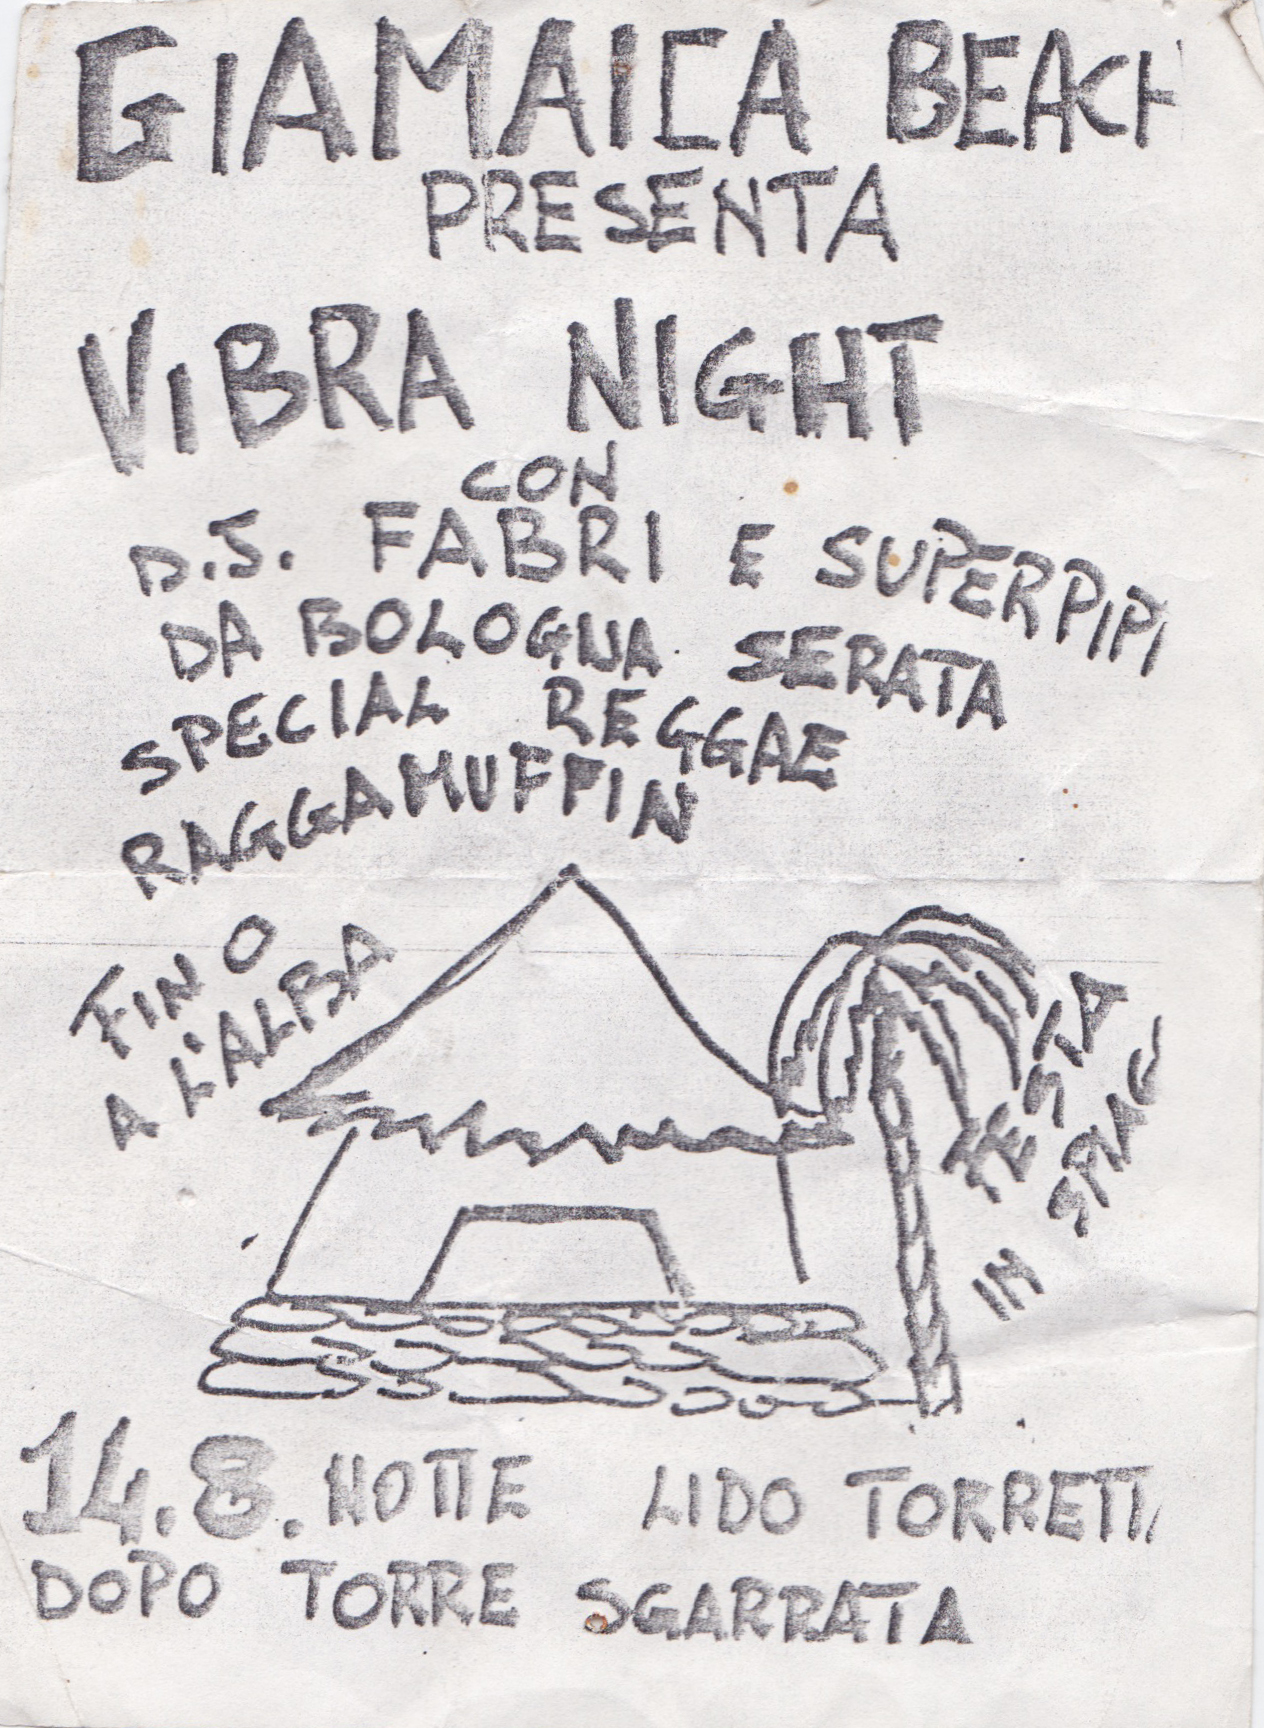 GIAMAICA BEACH
PRESENTA
VIBRA NIGHT
CON
D.J. FABRI E SUPERPIPI
DA BOLOGNA. SERATA
SPECIAL REGGAE
RAGGAMUFFIN
FINO
A L'ALBA
FESTA
IN SPIAG
14.8. NOTTE LIDO TORRETT
DOPO TORRE SGARRATA